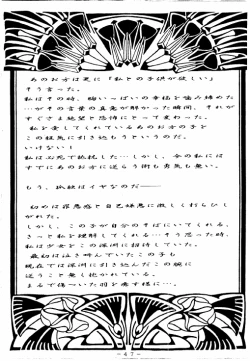 あのお方は更に「私との子供が欲しい」
そう言った。
私はその時、腕いっぱいの幸福を噛み締めた
…がその言葉の真意が解かった瞬間、それが
すぐさま絶望と恐怖にとって変わった。
私を愛してくれているあのお方の子を
この程馬に引き込もうというのだ。
いけない！
私は必死で抵抗した…しかし、今の私には
すでにあのお方に逆らう術も勇気も無い。
もう、抗拒はイヤなのだ──
初めは罪悪感と自己嫌悪に激しくむらひし
がれた。
しかし、この子が自分のそばにいてくれる、
きっと私を理解してくれる…そう思った時、
私は少女をこの深淵に招待していた。
最初は泣き叫んでいたこの子も
現在では深淵に引き込んだこの腕に
逆うこと無く抱かれている。
まるで傷ついた羽を癒す様に…。
-47-